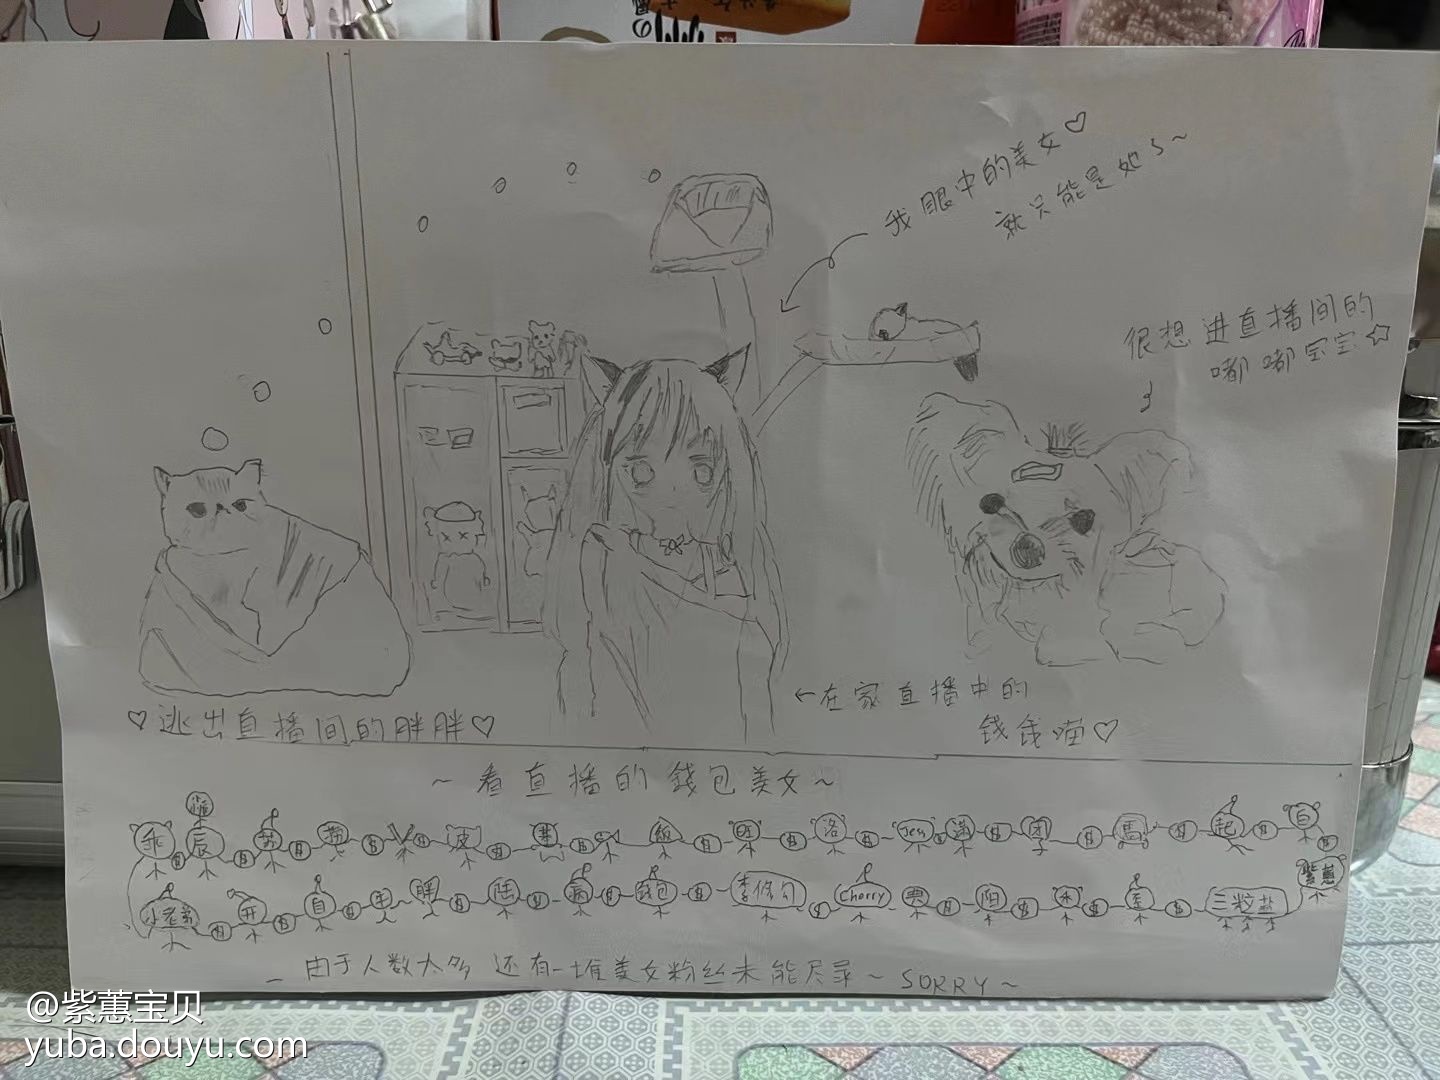 我眼中的美女♡
就只能是她~
很想进直播间的
嘟嘟宝宝☆
三日
♡逃出直播间的胖胖♡
←在家直播中的
钱钱喵♡
~看直播的钱包美女~
乖
辰
皮
洛
Jess
团
起
白
紫蕙
小老弟
开
自
胖
陆
钱包
Cherry
票
阳
三粒盐
由于人数太多 还有一堆美女粉丝未能尽录~ SORRY~
@紫蕙宝贝
yuba.douyu.com